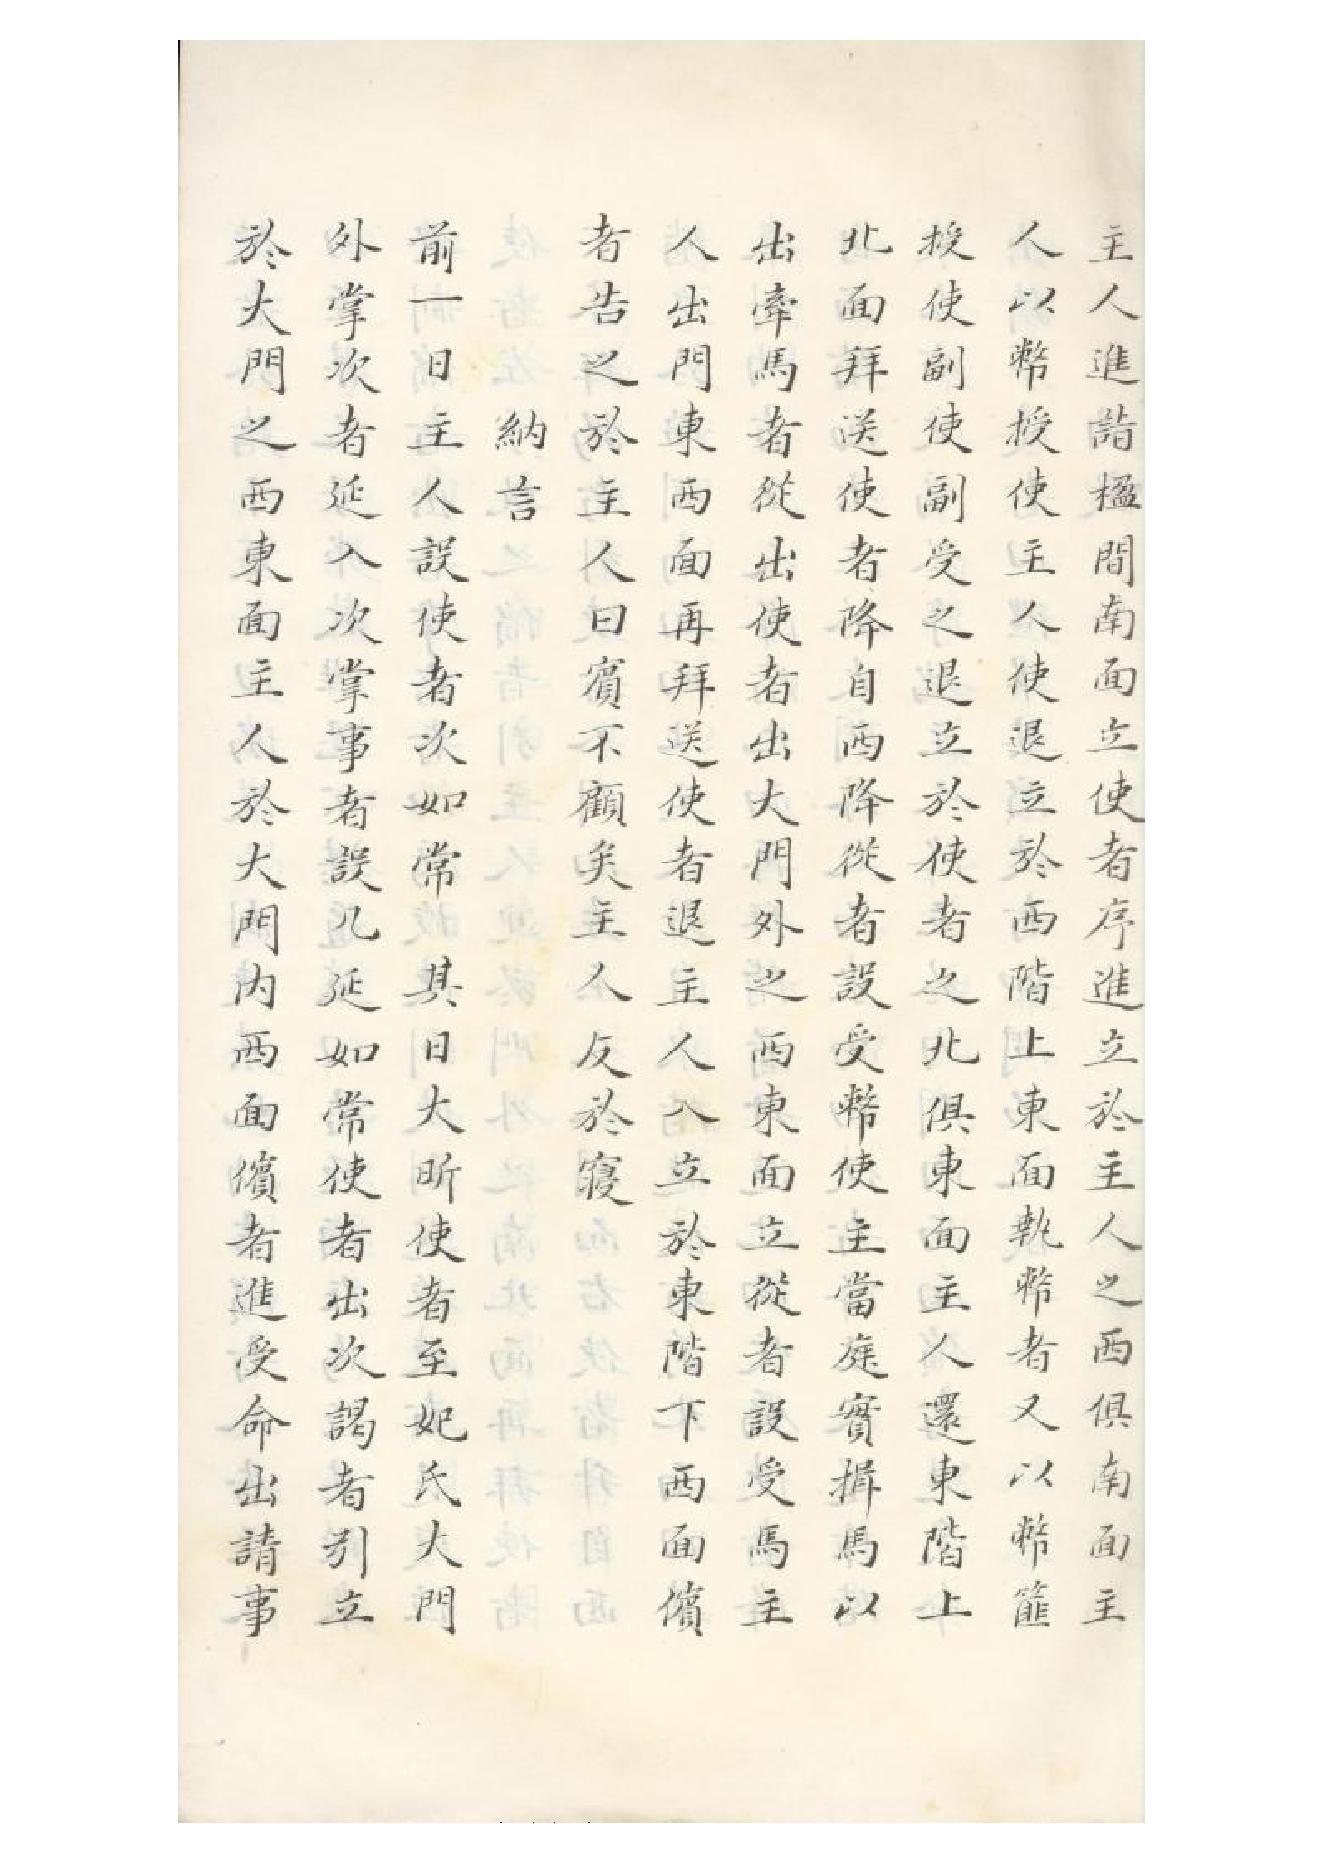 主人進詣楹間南面立使者序進立於主人之西俱南面主
人以幣授使主人使退立於西階上東面執幣者又以幣篚
授使副使副受之退立於使者之北俱東面主人還東階上
北面拜送使者降自西降從者設受幣使主當庭實揖馬以
出牽馬者從出使者出大門外之西東面立從者設受馬主
人出門東西面再拜送使者退主人入立於東階下西面儐
者告之於主人曰賓不顧矣主人反於寢
納言
前一日主人誤使者次如常其日大昕使者至妃氏大門
外掌次者延入次掌事者誤几延如常使者出次謁者引立
於大門之西東面主人於大門內西面儐者進受命出請事